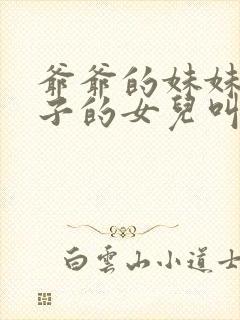 爺爺的妹妹
子的女兒叫
白雲山小道士